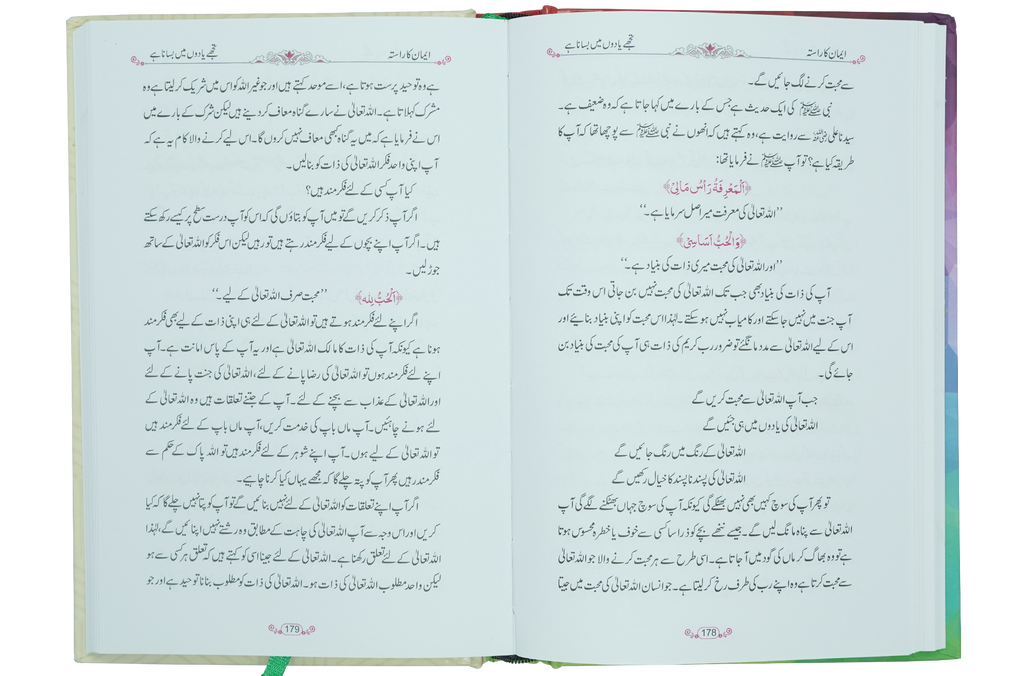 ایمان کا راستہ
تجھے یادوں میں بسانا ہے
سے محبت کرنے لگ جائیں گے۔
نبی ﷺ کی ایک حدیث ہے جس کے بارے میں کہا جاتا ہے کہ وہ ضعیف ہے۔
سیدنا علی رضی اللہ عنہ سے روایت ہے، وہ کہتے ہیں کہ انھوں نے نبی ﷺ سے پوچھا تھا کہ آپ کا
طریقہ کیا ہے؟ تو آپ ﷺ نے فرمایا تھا:
﴿اَلْمَعْرِفَةُ رَأْسُ مَالِيْ﴾
”اللہ تعالیٰ کی معرفت میرا اصل سرمایا ہے۔“
﴿وَالْحُبُّ اَسَاسِيْ﴾
”اور اللہ تعالیٰ کی محبت میری ذات کی بنیاد ہے۔“
آپ کی ذات کی بنیاد بھی جب تک اللہ تعالیٰ کی محبت نہیں بن جاتی اس وقت تک
آپ جنت میں نہیں جا سکتے اور کامیاب نہیں ہو سکتے۔ لہٰذا اس محبت کو اپنی بنیاد بنائیے اور
اس کے لیے اللہ تعالیٰ سے مدد مانگئے تو ضرور رب کریم کی ذات ہی آپ کی محبت کی بنیاد بن
جائے گی۔
جب آپ اللہ تعالیٰ سے محبت کریں گے
اللہ تعالیٰ کی یادوں میں ہی جئیں گے
اللہ تعالیٰ کے رنگ میں رنگ جائیں گے
اللہ تعالیٰ کی پسند نا پسند کا خیال رکھیں گے
تو پھر آپ کی سوچ کہیں بھی نہیں بھٹکے گی کیونکہ آپ کی سوچ جہاں بھٹکنے لگے گی آپ
اللہ تعالیٰ سے پناہ مانگ لیں گے۔ جیسے ننھے بچے کو ذرا سا کسی سے خوف یا خطرہ محسوس ہوتا
ہے تو وہ بھاگ کر ماں کی گود میں آ جاتا ہے۔ اسی طرح سے ہر محبت کرنے والا جو اللہ تعالیٰ
سے محبت کرتا ہے وہ اپنے رب کی طرف رخ کر لیتا ہے۔ جو انسان اللہ تعالیٰ کی محبت میں جیتا
178
ایمان کا راستہ
تجھے یادوں میں بسانا ہے
ہے وہ توحید پرست ہوتا ہے، اسے موحد کہتے ہیں اور جو غیر اللہ کو اس میں شریک کر لیتا ہے وہ
مشرک کہلاتا ہے۔ اللہ تعالیٰ نے سارے گناہ معاف کر دینے ہیں لیکن شرک کے بارے میں
اس نے فرمایا ہے کہ میں یہ گناہ بھی معاف نہیں کروں گا۔ اس لیے کرنے والا کام یہ ہے کہ
آپ اپنی واحد فکر اللہ تعالیٰ کی ذات کو بنالیں۔
کیا آپ کسی کے لئے فکر مند ہیں؟
اگر آپ ذکر کریں گے تو میں آپ کو بتاؤں گی کہ اس کو آپ درست سطح پر کیسے رکھ سکتے
ہیں۔ اگر آپ اپنے بچوں کے لیے فکر مند رہتے ہیں تو رہیں لیکن اس فکر کو اللہ تعالیٰ کے ساتھ
جوڑ لیں۔
﴿اَلْحُبُّ لِلّٰه﴾ ”محبت صرف اللہ تعالیٰ کے لیے۔“
اگر اپنے لئے فکر مند ہوتے ہیں تو اللہ تعالیٰ کے لئے ہی اپنی ذات کے لیے بھی فکر مند
ہونا ہے کیونکہ آپ کی ذات کا مالک اللہ تعالیٰ ہے اور یہ آپ کے پاس امانت ہے۔ آپ
اپنے لئے فکر مند ہوں تو اللہ تعالیٰ کی رضا پانے کے لئے، اللہ تعالیٰ کی جنت پانے کے لئے
اور اللہ تعالیٰ کے عذاب سے بچنے کے لئے۔ آپ کے جتنے تعلقات ہیں وہ اللہ تعالیٰ کے
لئے ہونے چاہئیں۔ آپ ماں باپ کی خدمت کریں، آپ ماں باپ کے لئے فکر مند ہیں
تو اللہ تعالیٰ کے لیے ہوں۔ آپ اپنے شوہر کے لئے فکر مند ہیں تو اللہ پاک کے حکم سے
فکر مند رہیں پھر آپ کو پتہ چلے گا کہ مجھے یہاں کیا کرنا چاہیے۔
اگر آپ اپنے تعلقات کو اللہ تعالیٰ کے لئے نہیں بنائیں گے تو آپ کو پتا نہیں چلے گا کہ کیا
کریں اور اس وجہ سے آپ اللہ تعالیٰ کی چاہت کے مطابق وہ رشتے نہیں اپنائیں گے، لہٰذا
اللہ تعالیٰ کے لئے تعلق رکھنا ہے۔ اللہ تعالیٰ کے لئے جینا اسی کو کہتے ہیں کہ تعلق ہر کسی سے ہو
لیکن واحد مطلوب اللہ تعالیٰ کی ذات ہو۔ اللہ تعالیٰ کی ذات کو مطلوب بنانا توحید ہے اور جو
179